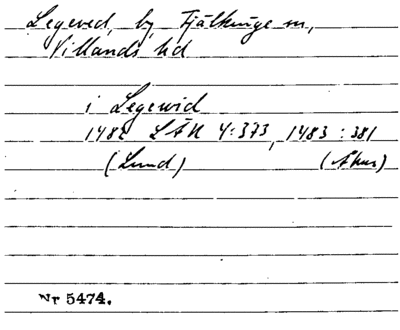 Legeved, by, Fjälkinge sn,
Villands hd
i Legewid
1482 LÄU 4:373, 1483 :381
(Lund) (Åhus)
Nr 5474.